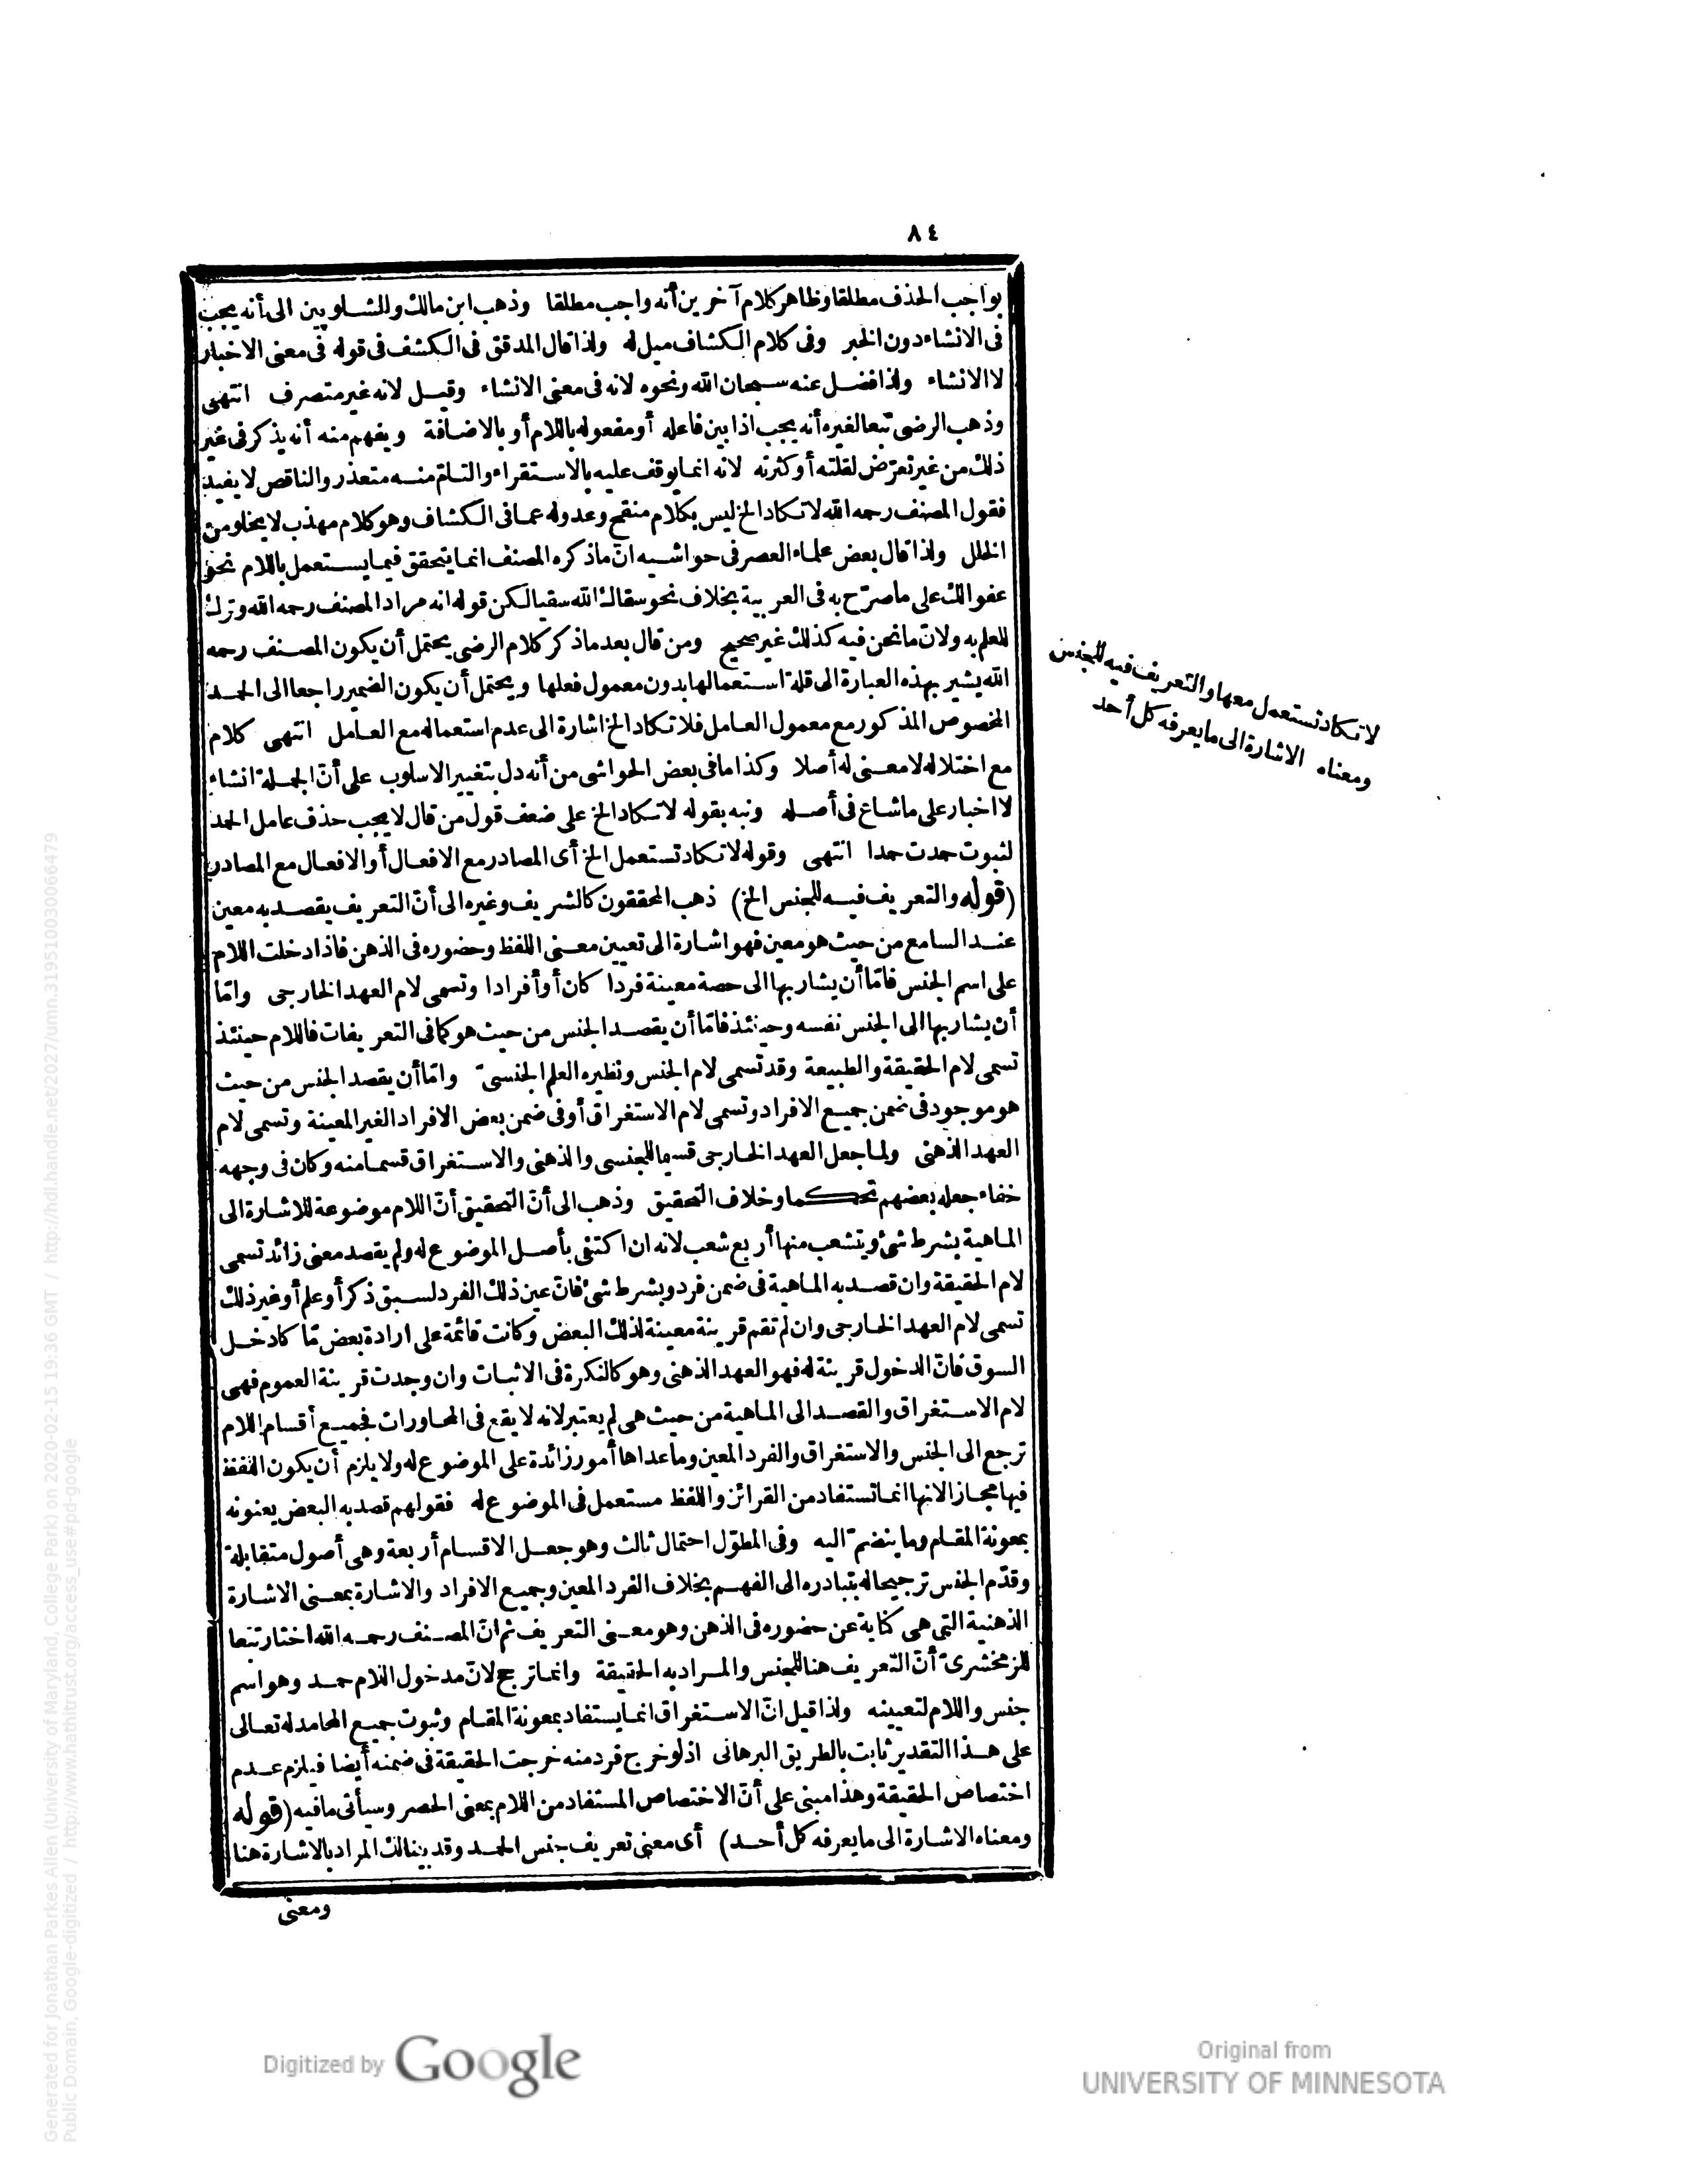 ٨٤
بواجب الحذف مطلقا وظاهر كلام آخرين أنه واجب مطلقا وذهب ابن مالك والشلوبين الى أنه يجب
فى الانشاء دون الخبر وفى كلام الكشاف ميل له ولذا قال المدقق فى الكشف فى قوله فى معنى الاخبار
لا الانشاء ولذا فضل عنه سبحان الله ونحوه لانه فى معنى الانشاء وقيل لانه غير متصرف انتهى
وذهب الرضى تبعا لغيره أنه يجب اذا بين فاعله أو مفعوله باللام أو بالاضافة ويفهم منه أنه يذكر فى غير
ذلك من غير تعرّض لقلته أو كثرته لانه انما يوقف عليه بالاستقراء والتامّ منه متعذر والناقص لا يفيد
فقول المصنف رحمه الله لا تكاد الخ ليس بكلام منقح وعدوله عما فى الكشاف وهو كلام مهذب لا يخلو من
الخلل ولذا قال بعض علماء العصر فى حواشيه انّ ما ذكره المصنف انما يتحقق فيما يستعمل باللام نحو
عفوا لك على ما صرّح به فى العربية بخلاف نحو سقاك الله سقيا لكن قوله انه مراد المصنف رحمه الله وترك
للعلم به ولانّ ما نحن فيه كذلك غير صحيح ومن قال بعد ما ذكر كلام الرضى يحتمل أن يكون المصنف رحمه
الله يشير بهذه العبارة الى قلة استعمالها بدون معمول فعلها ويحتمل أن يكون الضمير راجعا الى الحمد
المخصوص المذكور مع معمول العامل فلا تكاد الخ اشارة الى عدم استعماله مع العامل انتهى كلام
مع اختلاله لا معنى له أصلا وكذا ما فى بعض الحواشى من أنه دل بتغيير الاسلوب على أنّ الجملة انشاء
لا اخبار على ما شاع فى أصله ونبه بقوله لا تكاد الخ على ضعف قول من قال لا يجب حذف عامل الحمد
لثبوت حمدت حمدا انتهى وقوله لا تكاد تستعمل الخ أى المصادر مع الافعال أو الافعال مع المصادر
(قوله والتعريف فيه للجنس الخ) ذهب المحققون كالشريف وغيره الى أنّ التعريف يقصد به معين
عند السامع من حيث هو معين فهو اشارة الى تعيين معنى اللفظ وحضوره فى الذهن فاذا دخلت اللام
على اسم الجنس فامّا أن يشار بها الى حصة معينة فردا كان أو أفرادا وتسمى لام العهد الخارجى وامّا
أن يشار بها الى الجنس نفسه وحينئذ فامّا أن يقصد الجنس من حيث هو كما فى التعريفات فاللام حينئذ
تسمى لام الحقيقة والطبيعة وقد تسمى لام الجنس ونظيره العلم الجنسىّ وامّا أن يقصد الجنس من حيث
هو موجود فى ضمن جميع الافراد وتسمى لام الاستغراق أو فى ضمن بعض الافراد الغير المعينة وتسمى لام
العهد الذهنى ولما جعل العهد الخارجى قسيما للجنسى والذهنى والاستغراق قسما منه وكان فى وجهه
خفاء جعله بعضهم تحكما وخلاف التحقيق وذهب الى أنّ التحقيق أنّ اللام موضوعة للاشارة الى
الماهية بشرط شئ ويتشعب منها أربع شعب لانه ان اكتفى بأصل الموضوع له ولم يقصد معنى زائد تسمى
لام الحقيقة وان قصد به الماهية فى ضمن فرد وبشرط شئ فانّ عين ذلك الفرد لسبق ذكر أو علم أو غير ذلك
تسمى لام العهد الخارجى وان لم تقم قرينة معينة لذلك البعض وكانت قائمة على ارادة بعض مّا كادخل
السوق فانّ الدخول قرينة له فهو العهد الذهنى وهو كالنكرة فى الاثبات وان وجدت قرينة العموم فهى
لام الاستغراق والقصد الى الماهية من حيث هى لم يعتبر لانه لا يقع فى المحاورات فجميع أقسام اللام
ترجع الى الجنس والاستغراق والفرد المعين وما عداها أمور زائدة على الموضوع له ولا يلزم أن يكون اللفظ
فيها مجازا لانها انما تستفاد من القرائن واللفظ مستعمل فى الموضوع له فقولهم قصد به البعض يعنونه
بمعونة المقام وما ينضمّ اليه وفى المطوّل احتمال ثالث وهو جعل الاقسام أربعة وهى أصول متقابلة
وقدّم الجنس ترجيحا له بتبادره الى الفهم بخلاف الفرد المعين وجميع الافراد والاشارة بمعنى الاشارة
الذهنية التى هى كناية عن حضوره فى الذهن وهو معنى التعريف ثم انّ المصنف رحمه الله اختار تبعا
للزمخشرىّ أنّ التعريف هنا للجنس والمراد به الحقيقة وانما ترجح لانّ مدخول اللام حمد وهو اسم
جنس واللام لتعيينه ولذا قيل انّ الاستغراق انما يستفاد بمعونة المقام وثبوت جميع المحامد له تعالى
على هذا التقدير ثابت بالطريق البرهانى اذ لو خرج فرد منه خرجت الحقيقة فى ضمنه أيضا فيلزم عدم
اختصاص الحقيقة وهذا مبنى على أنّ الاختصاص المستفاد من اللام بمعنى الحصر وسيأتى ما فيه (قوله
ومعناه الاشارة الى ما يعرفه كل أحد) أى معنى تعريف جنس الحمد وقد بينا لك المراد بالاشارة هنا
ومعنى
لا تكاد تستعمل معها والتعريف فيه للجنس
ومعناه الاشارة الى ما يعرفه كل أحد
Generated for Jonathan Parkes Allen (University of Maryland, College Park) on 2020-02-15 19:36 GMT / http://hdl.handle.net/2027/umn.31951003006647 9
Public Domain, Google-digitized / http://www.hathitrust.org/access_use#pd-google
Digitized by Google
Original from
UNIVERSITY OF MINNESOTA